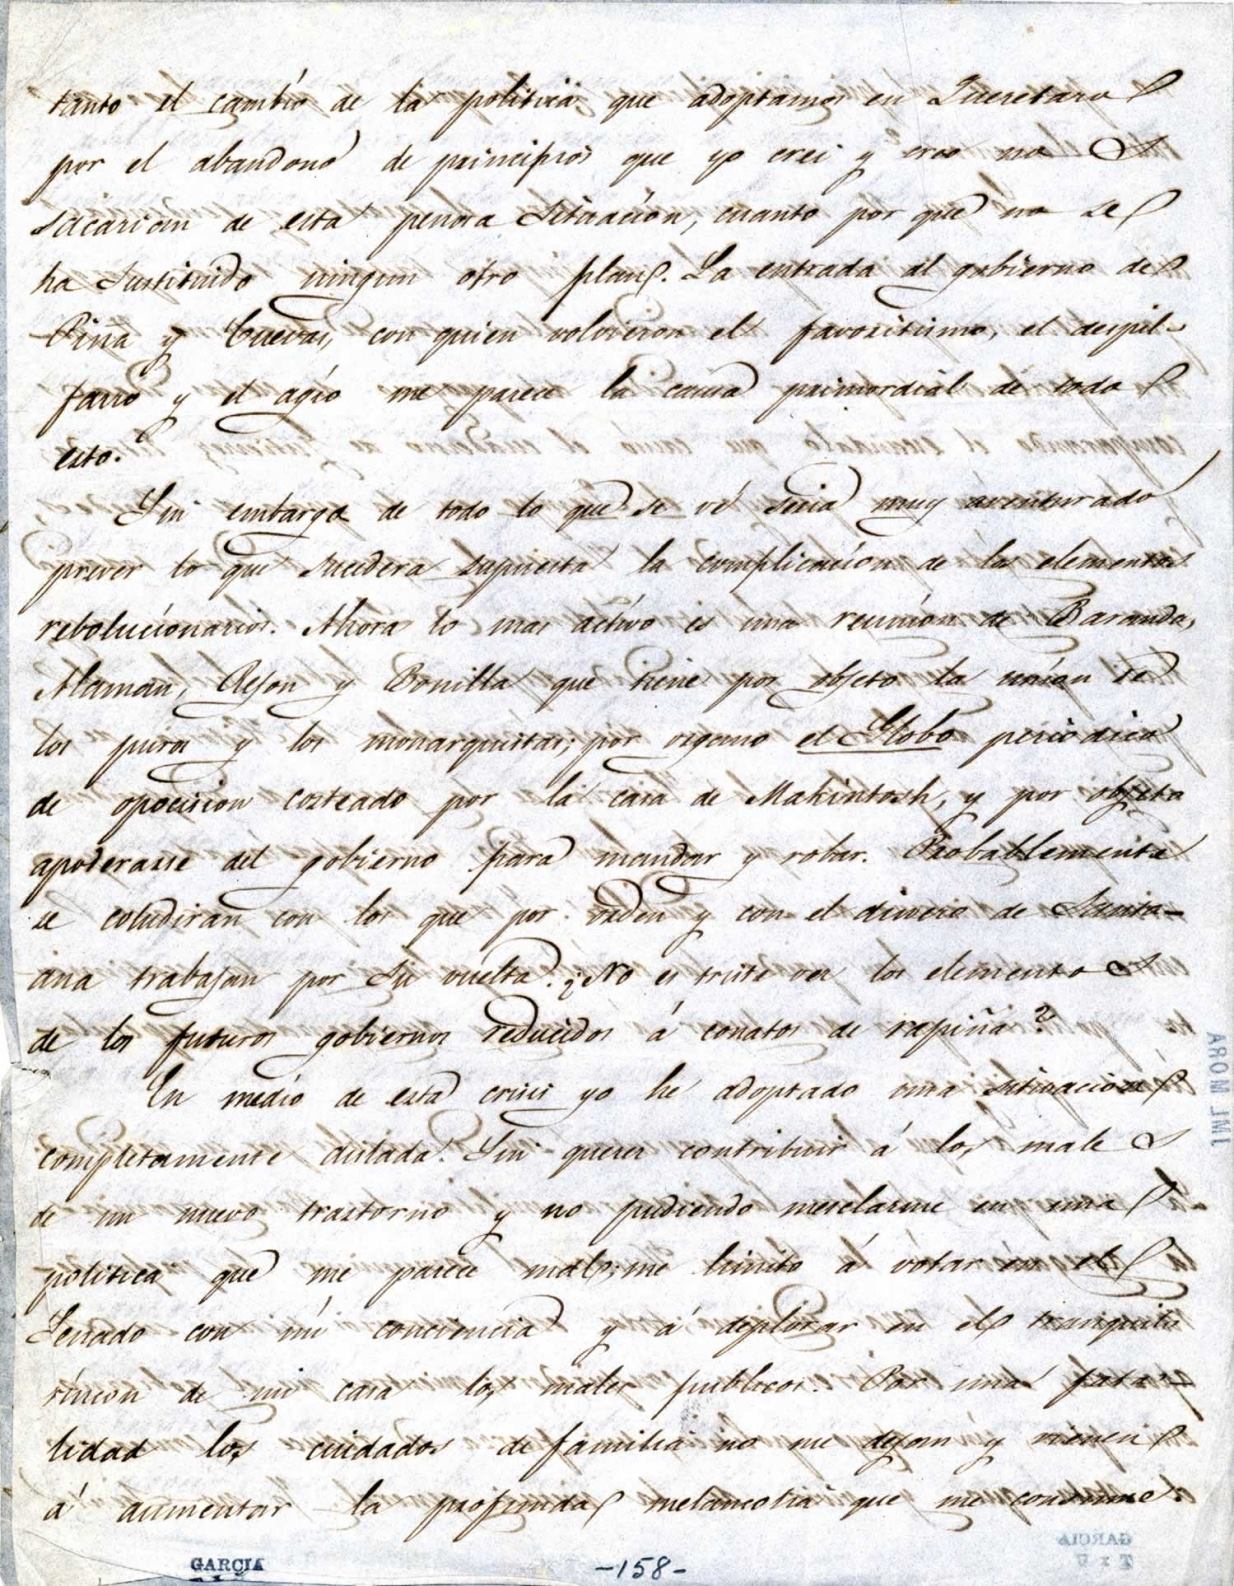 tanto el cambio de la politica que adoptamos en Queretaro
por el abandono de principios que yo crei y creo nos
sacarian de esta penosa situacion, cuanto por que no se
ha sustituido ningun otro plan. La entrada al gobierno de
Piña y Cuevas, con quien volvieron el favoritismo, el despil-
farro y el agio me parece la causa primordial de todo
esto.
Sin embargo de todo lo que se vé seria muy aventurado
prever lo que sucedera supuesta la complicacion de los elementos
rebolucionarios. Ahora lo mas activo es una reunion de Baranda,
Alaman, Rejon y Bonilla que tiene por objeto la union de
los puros y los monarquistas; por organo el Globo periodico
de oposicion costeado por la casa de Makintosh, y por objeto
apoderarse del gobierno para mandar y robar. Probablemente
se coludiran con los que por orden y con el dinero de Santa-
ana trabajan por su vuelta. ¿No es triste ver los elementos
de los futuros gobiernos reducidos á conatos de rapiña?
En medio de esta crisis yo he adoptado una situacion
completamente aislada. Sin querer contribuir á los males
de un nuevo trastorno y no pudiendo mesclarme en una
politica que me parece mal; me limito á votar en el
Senado con mi conciencia y á deplorar en el tranquilo
rincon de mi casa los males publicos. Por una fata-
lidad los cuidados de familia no me dejan y vienen
á aumentar la profunda melancolia que me consume.
GARCIA
-158-